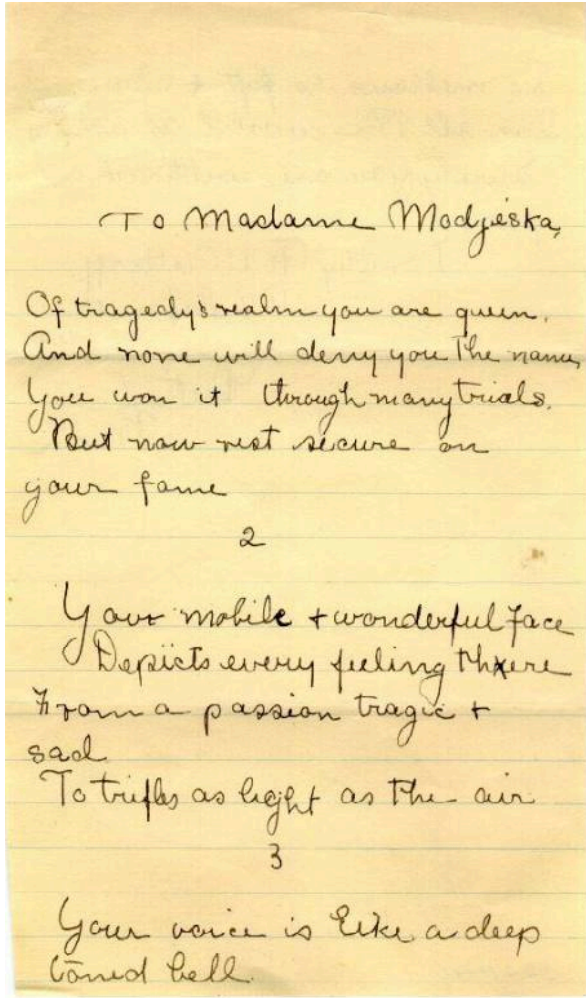 To Madame Modjeska,
Of tragedy's realm you are queen.
And none will deny you the name,
You won it through many trials.
But now rest secure on
your fame
2
Your mobile + wonderful face
Depicts every feeling there
From a passion tragic +
sad
To trifles as light as the air
3
Your voice is like a deep
toned bell.